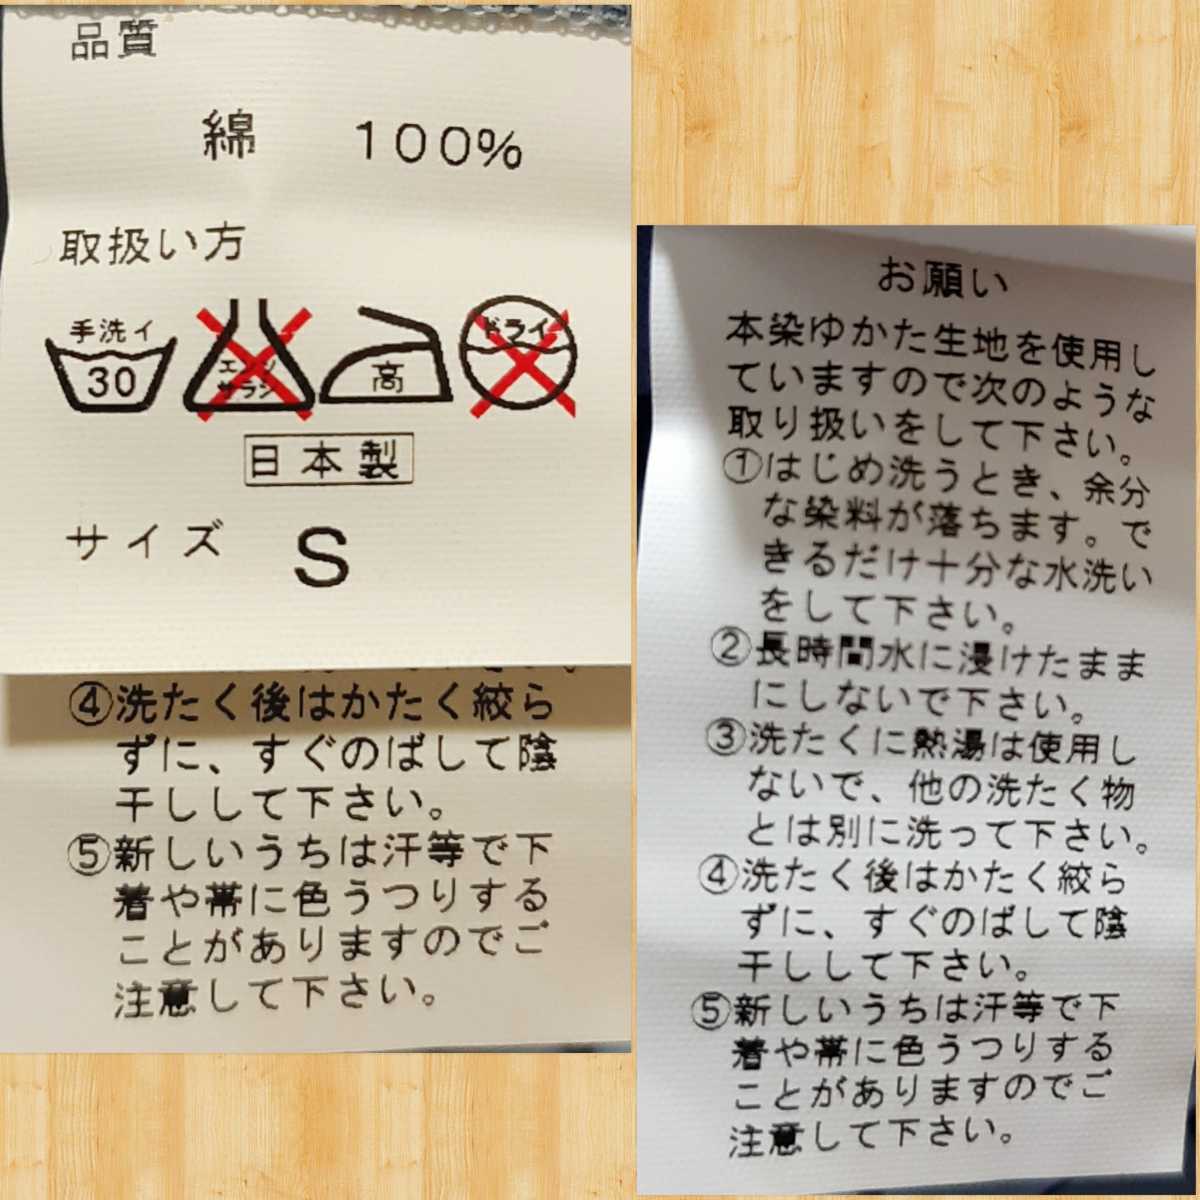 品質
綿 100%
取扱い方
手洗イ
30
エンソ
サラシ
高
ドライ
日本製
サイズ S
④洗たく後はかたく絞ら
ずに、すぐのばして陰
干しして下さい。
⑤新しいうちは汗等で下
着や帯に色うつりする
ことがありますのでご
注意して下さい。
お願い
本染ゆかた生地を使用し
ていますので次のような
取り扱いをして下さい。
①はじめ洗うとき、余分
な染料が落ちます。で
きるだけ十分な水洗い
をして下さい。
②長時間水に浸けたまま
にしないで下さい。
③洗たくに熱湯は使用し
ないで、他の洗たく物
とは別に洗って下さい。
④洗たく後はかたく絞ら
ずに、すぐのばして陰
干しして下さい。
⑤新しいうちは汗等で下
着や帯に色うつりする
ことがありますのでご
注意して下さい。